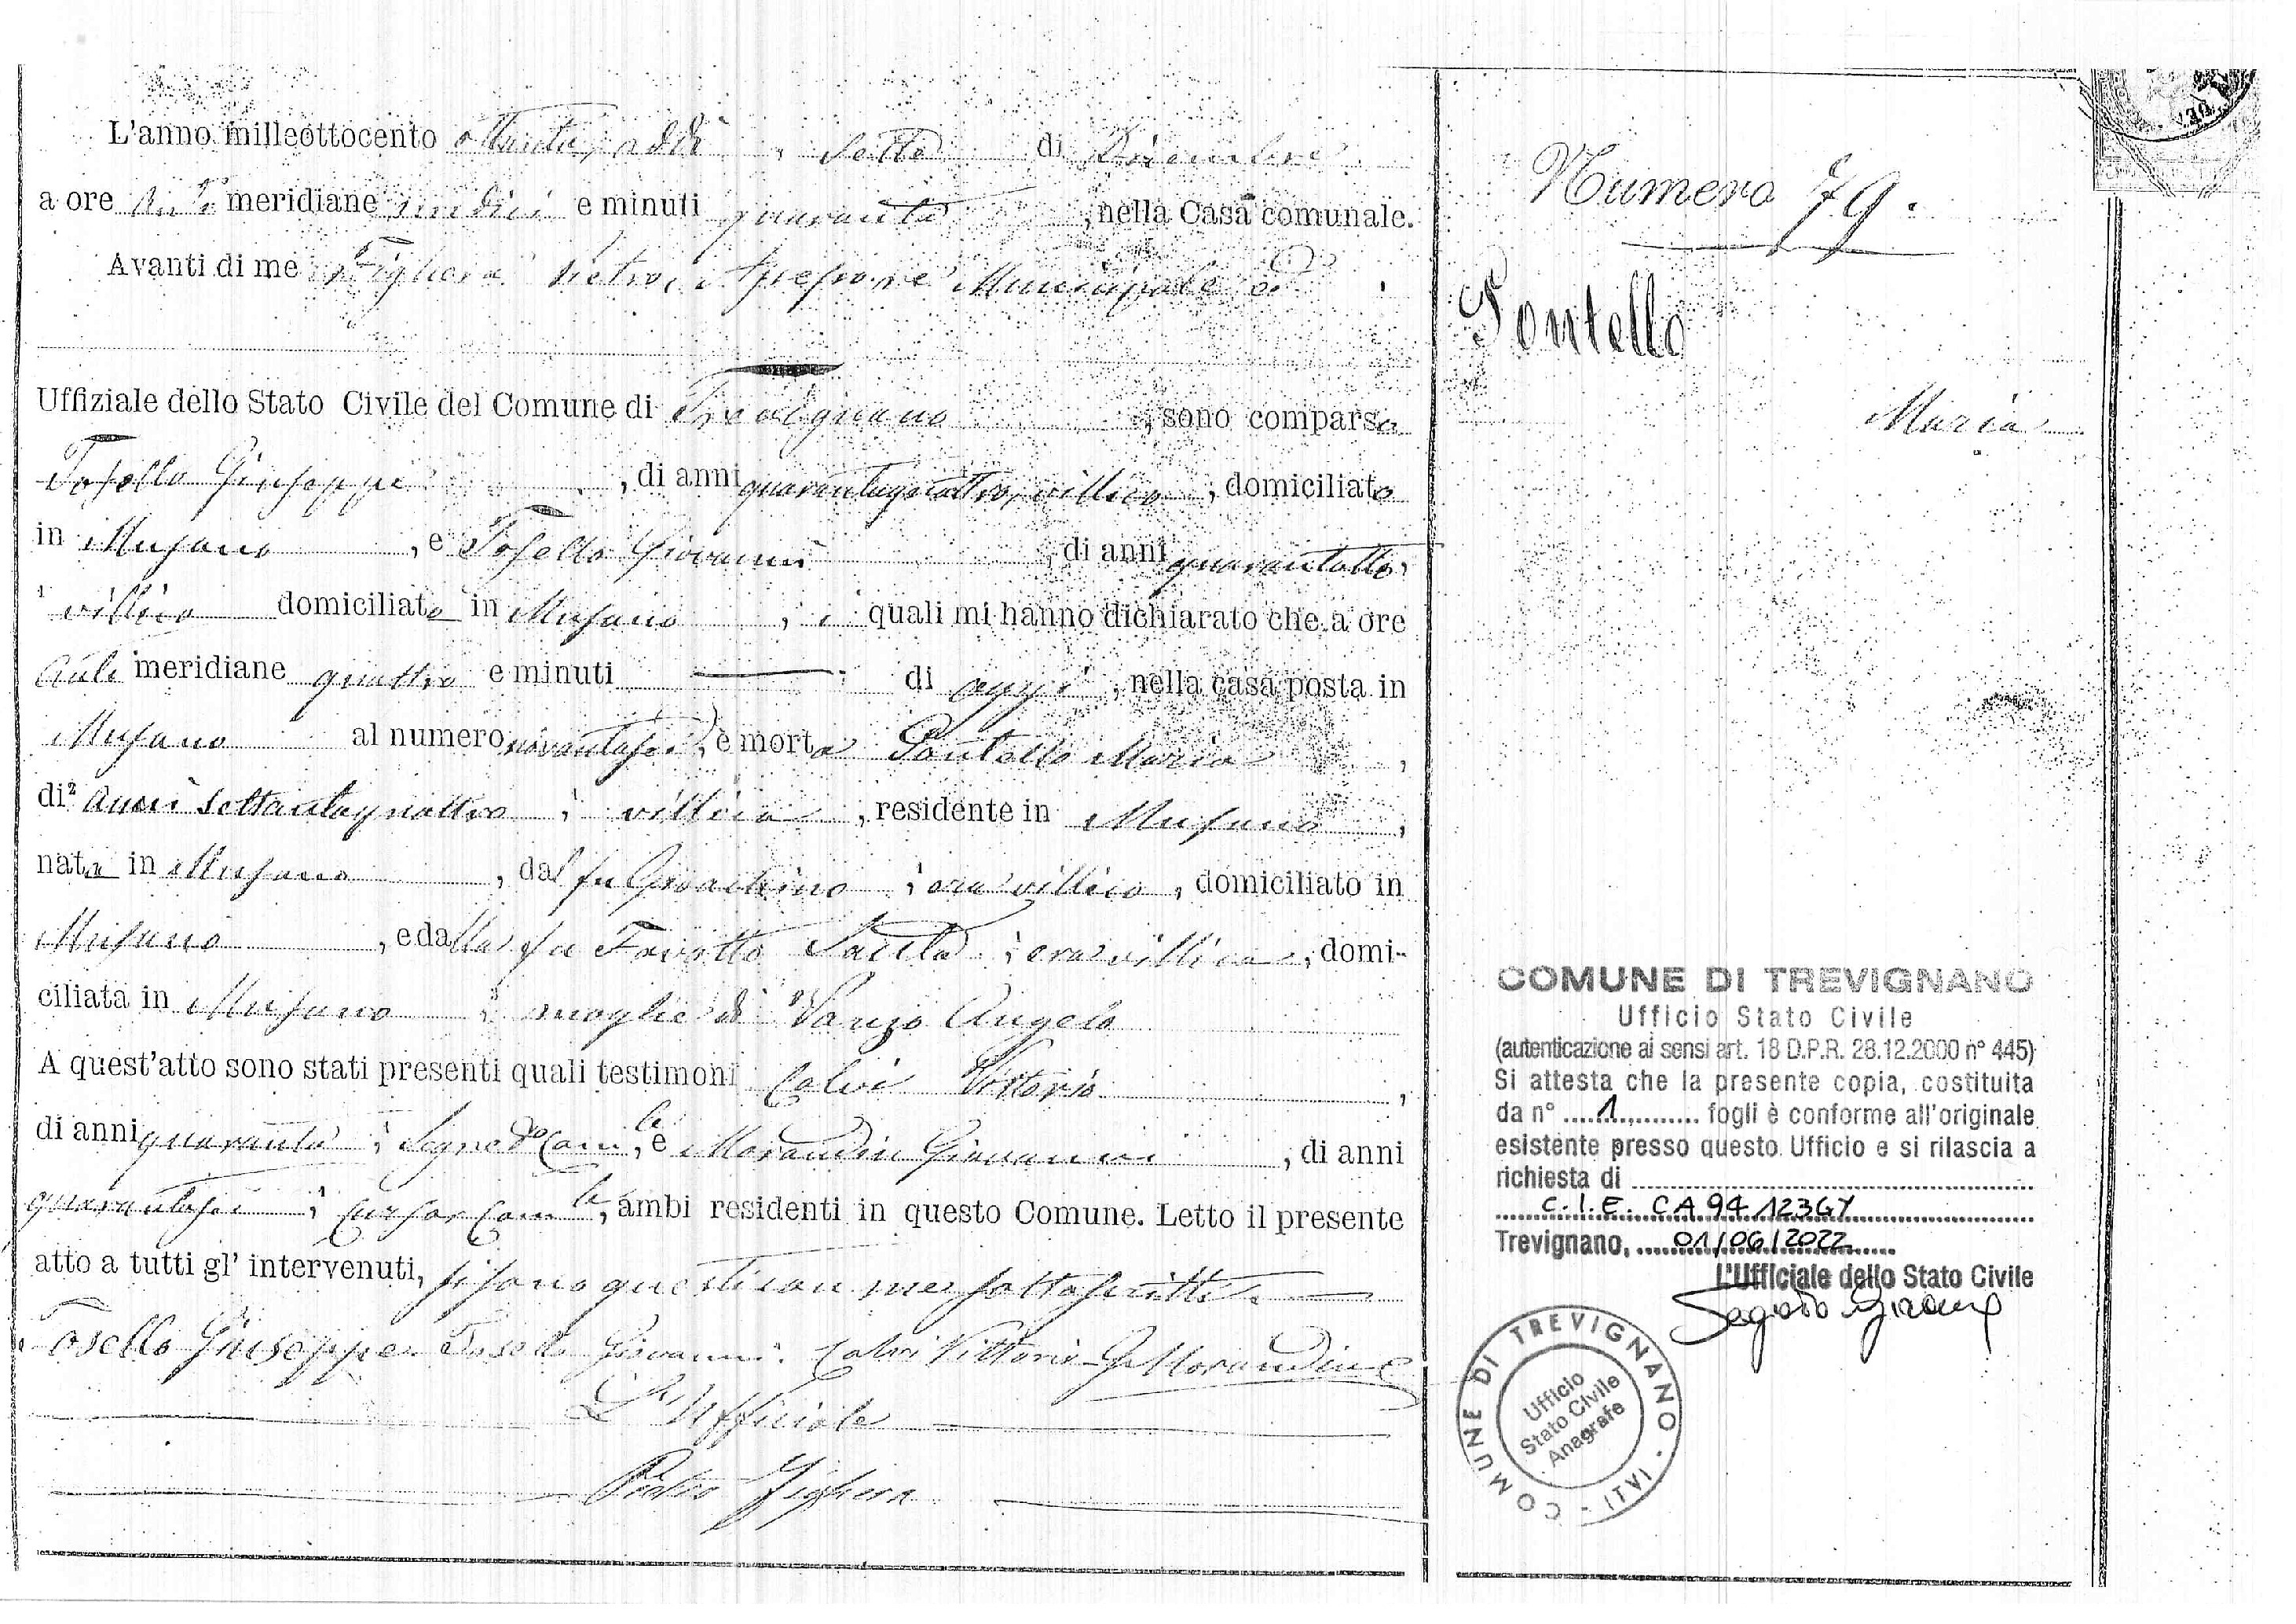 L'anno milleottocento ottanta, addì sette di Dicembre
a ore Anti meridiane undici e minuti quaranta, nella Casa comunale.
Avanti di me Fighera Pietro, Assessore Municipale
Uffiziale dello Stato Civile del Comune di Trevignano, sono comparsi
Tosello Giuseppe, di anni quarantaquattro, villico, domiciliato
in Musano, e Tosello Giovanni, di anni quarantotto,
villico domiciliato in Musano, i quali mi hanno dichiarato che a ore
Anti meridiane quattro e minuti — di oggi, nella casa posta in
Musano al numero novantasei, è morta Pontello Maria,
di² anni settantaquattro, villica, residente in Musano,
nata in Musano, dal fu Gioachino, era villico, domiciliato in
Musano, e dalla fu Favotto Santa, era villica, domi-
ciliata in Musano, moglie di Vanzo Angelo
A quest'atto sono stati presenti quali testimoni Calvi Vittorio,
di anni quaranta, Segret° Com.le, e Morandin Giovanni, di anni
quarantasei, Cursor Com.le, ambi residenti in questo Comune. Letto il presente
atto a tutti gl' intervenuti, si sono questi con me sottoscritti.
Tosello Giuseppe Tosello Giovanni. Calvi Vittorio G Morandin
L'Ufficiale
Pietro Fighera
Numero 79.
Pontello
Maria
COMUNE DI TREVIGNANO
Ufficio Stato Civile
(autenticazione ai sensi art. 18 D.P.R. 28.12.2000 n° 445)
Si attesta che la presente copia, costituita
da n° ....1........... fogli è conforme all'originale
esistente presso questo Ufficio e si rilascia a
richiesta di
C.I.E. CA94123GY
Trevignano, 01/06/2022
L'Ufficiale dello Stato Civile
COMUNE DI TREVIGNANO - (TV)
Ufficio
Stato Civile
Anagrafe